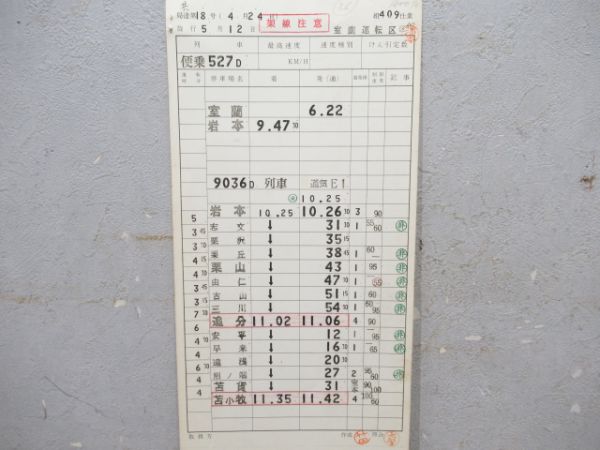 局達第18号(4月24日) 組409仕業
施行5月12日 架線注意 室蘭運転区
列車 最高速度 速度種別 けん引定数
便乗527D KM/H
停車場名 着 発(通) 記事
室蘭 6.22
岩本 9.47 30
9036D 列車 道気E1
10.25
5 岩本 10.25 10.26 30 3 90
3 45 志文 ↓ 31 10 1 55 60 非
3 栗沢 ↓ 35 15
4 15 栗丘 ↓ 38 45 1 60 非
4 栗山 ↓ 43 1 95 非
4 由仁 ↓ 47 10 1 55 非
3 古山 ↓ 51 15 1 60 非
7 三川 ↓ 54 30 1 60 非
6 追分 11.02 11.06 4 90
4 安平 ↓ 12 1 非
4 早来 ↓ 16 30 1 65 非
6 遠浅 ↓ 20 30
4 沼ノ端 ↓ 27 2 95 60 非
4 苫貨 ↓ 31 90 100
苫小牧 11.35 11.42 4 100 60
乗務方 作成 照合